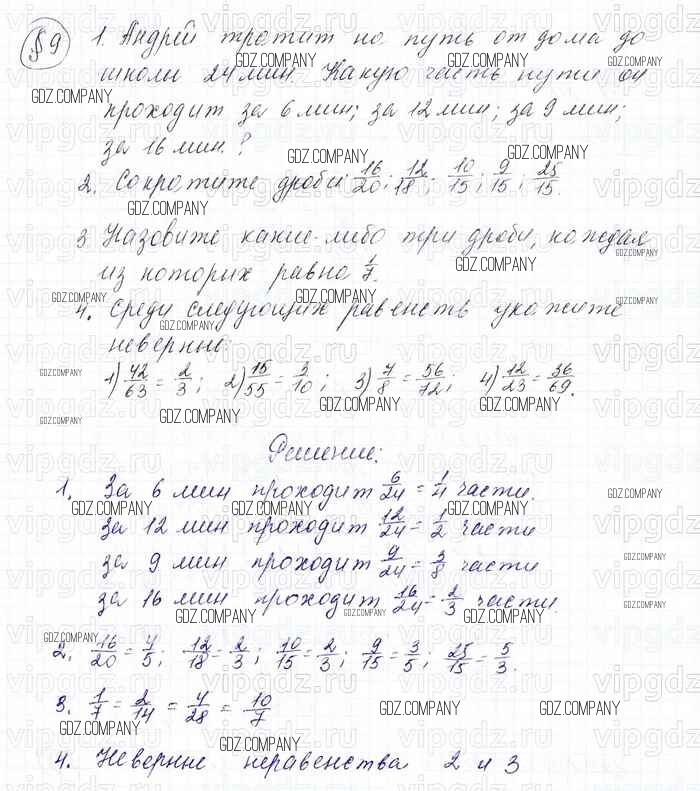 §9 1. Андрей тратит на путь от дома до
школы 24 мин. Какую часть пути он
проходит за 6 мин; за 12 мин; за 9 мин;
за 16 мин.?
2. Сократите дроби: 16/20; 12/18; 10/15; 9/15; 25/15.
3 Назовите какие-либо три дроби, каждая
из которих равна 1/7.
4. Среди следующих равенств укажите
неверные:
1) 42/63 = 2/3; 2) 15/55 = 3/10; 3) 7/8 = 56/72; 4) 12/23 = 36/69.
Решение:
1. За 6 мин проходит 6/24 = 1/4 части.
за 12 мин проходит 12/24 = 1/2 части
за 9 мин проходит 9/24 = 3/8 части
за 16 мин проходит 16/24 = 2/3 части.
2. 16/20 = 4/5; 12/18 = 2/3; 10/15 = 2/3; 9/15 = 3/5; 25/15 = 5/3.
3. 1/7 = 2/14 = 4/28 = 10/7
4. Неверные неравенства 2 и 3
GDZ.COMPANY
vipgdz.ru